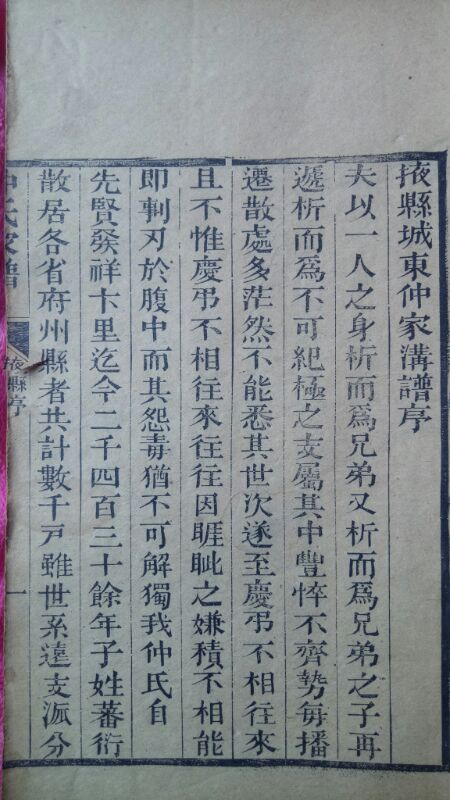 掖縣城東仲家溝譜序
夫以一人之身析而爲兄弟又析而爲兄弟之子再
遞析而爲不可紀極之支屬其中豐悴不齊勢每播
遷散處多茫然不能悉其世次遂至慶弔不相往來
且不惟慶弔不相往來往往因睚眦之嫌積不相能
即剚刃於腹中而其怨毒猶不可解獨我仲氏自
先賢發祥卞里迄今二千四百三十餘年子姓蕃衍
散居各省府州縣者共計數千戸雖世系遠支派分
仲氏家譜
掖縣序
一